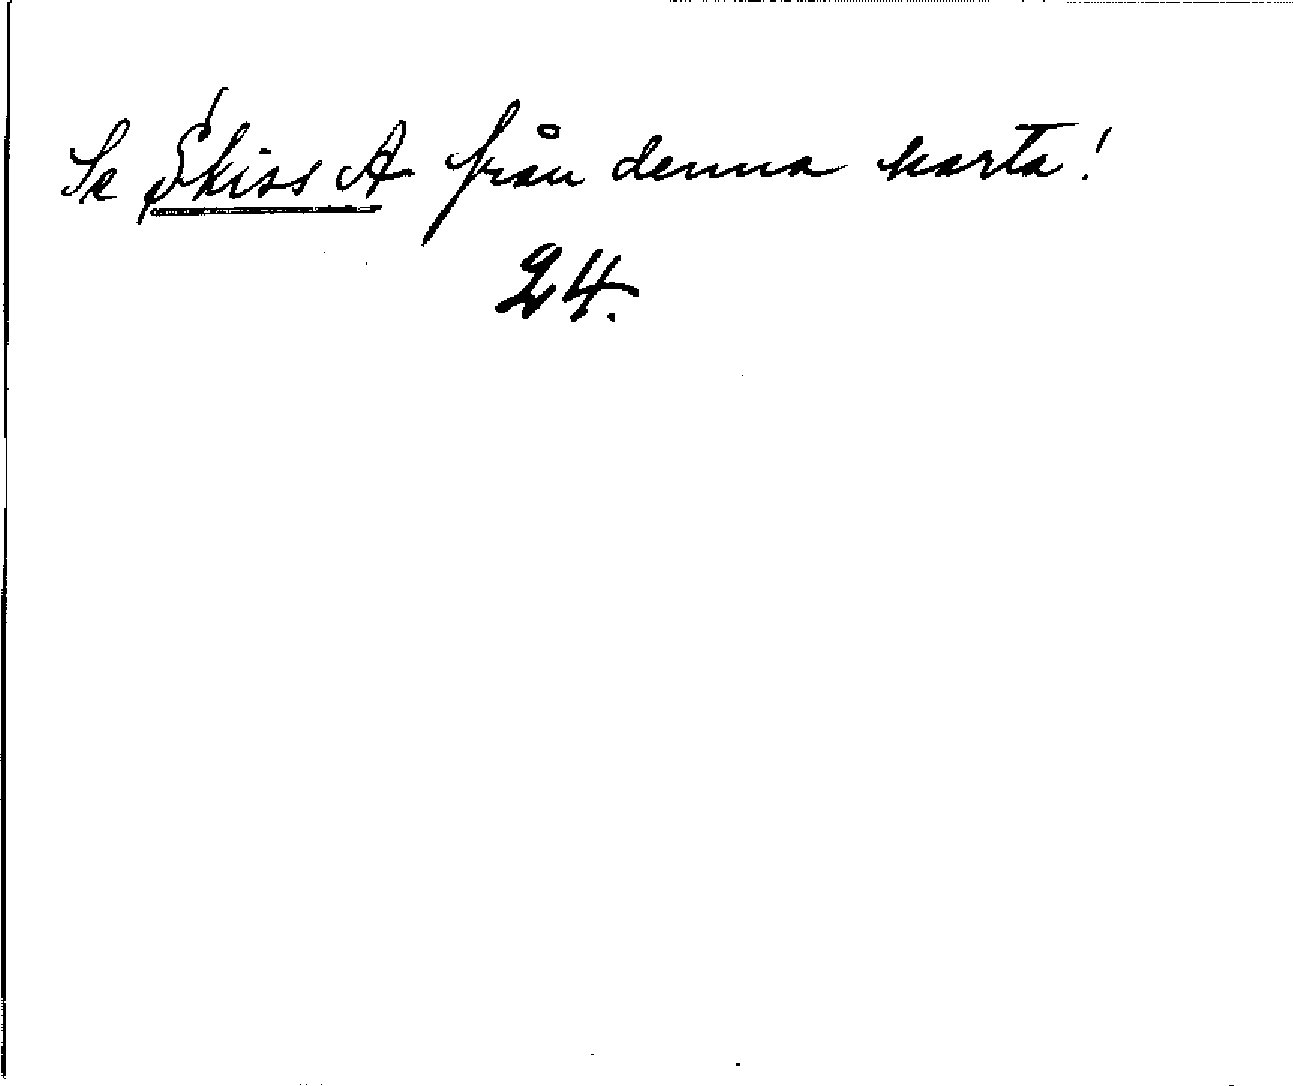 Se Skiss A från denna karta!
24.